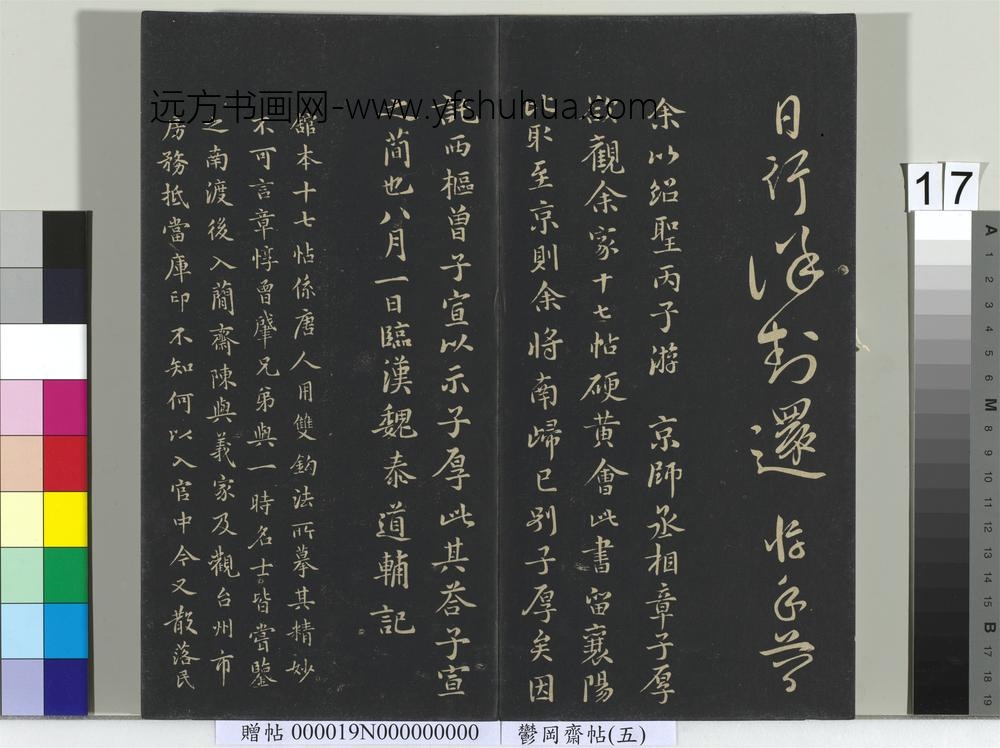 日行
封還
余以紹聖丙子游 京師丞相章子厚
觀余家十七帖硬黃會此書留襄陽
比取至京則余將南歸已別子厚矣因
託西樞曾子宣以示子厚此其荅子宣
簡也八月一日臨漢魏泰道輔記
館本十七帖係唐人用雙鈎法所摹其精妙
不可言章惇曾肇兄弟與一時名士皆嘗鑒
之南渡後入蕳齋陳與義家及觀台州市
房務抵當庫印不知何以入官中今又散落民
远方书画网-www.yfshuhua.com
17
A
1
2
3
4
5
6
M
8
9
10
11
12
13
14
15
B
17
18
19
贈帖 000019N000000000
鬱岡齋帖(五)